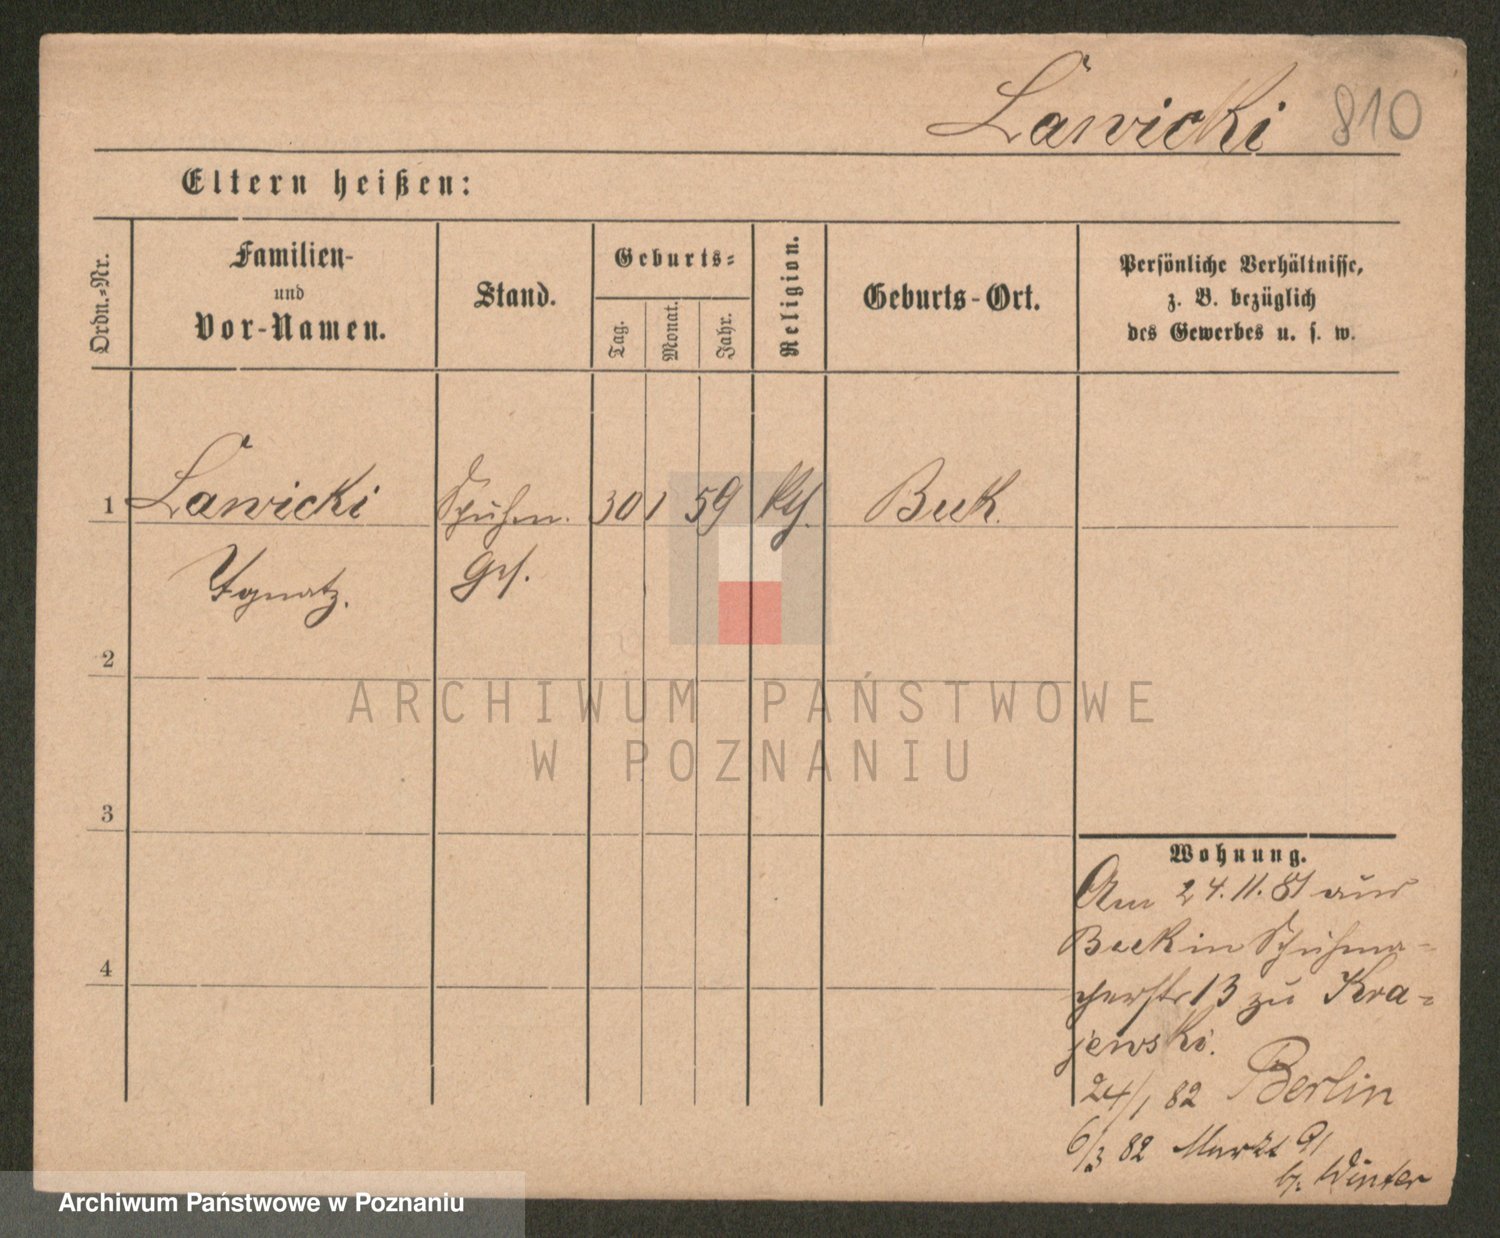 Lawicki 810
Eltern heißen:
Ordn.-Nr.
Familien-
und
Vor-Namen.
Stand.
Geburts-
Tag.
Monat.
Jahr.
Religion.
Geburts-Ort.
Persönliche Verhältnisse,
z. B. bezüglich
des Gewerbes u. s. w.
1 Lawicki Schuhm. 30 1 59 kth. Buk.
Ignatz. Ges.
2
ARCHIWUM PAŃSTWOWE
W POZNANIU
3
Wohnung.
Am 24.11.81 aus
Buk in Schuhma-
cherstr 13 zu Kra-
jewski.
4
24/1 82 Berlin
6/3 82 Markt 91
b. Winter
Archiwum Państwowe w Poznaniu